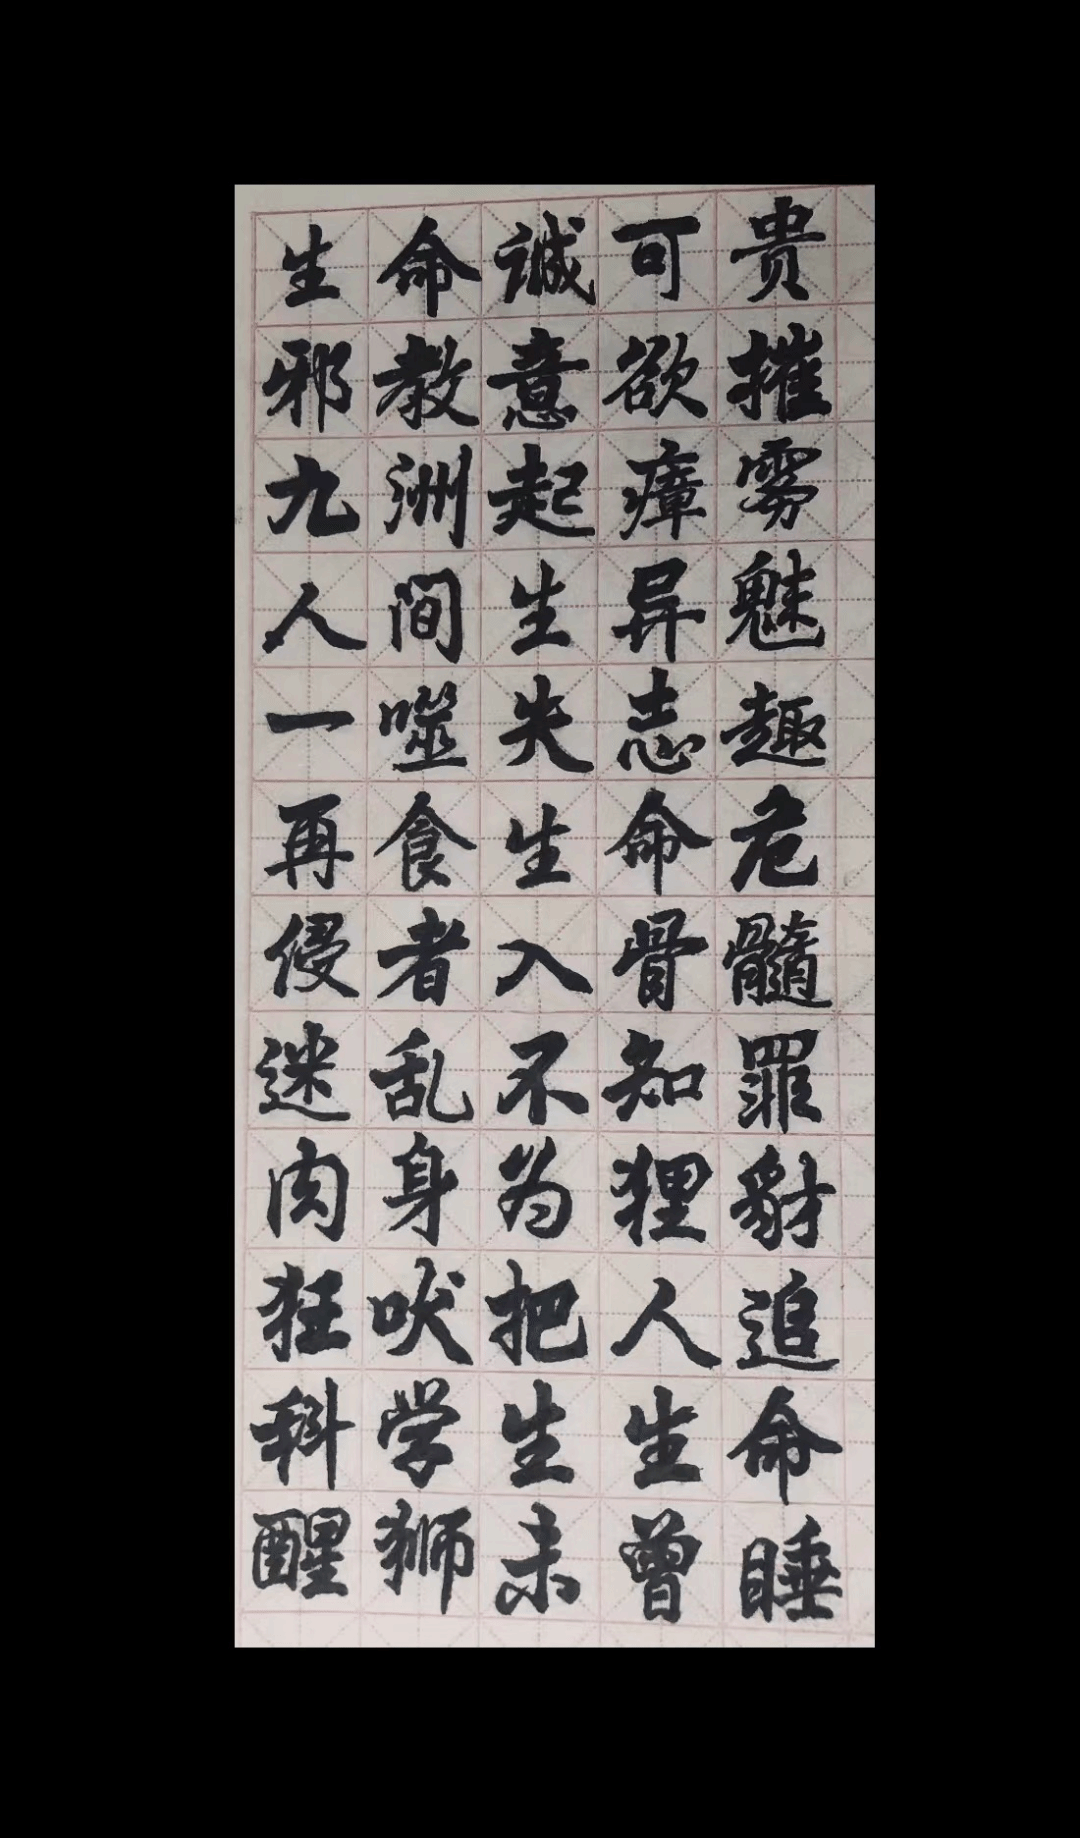 生命诚可贵
邪教意欲摧
九洲起瘴雾
人间生异魅
一噬失志趣
再食生命危
侵者入骨髓
迷乱不知罪
肉身为狸豺
狂吠把人追
科学生生命
醒狮未曾睡